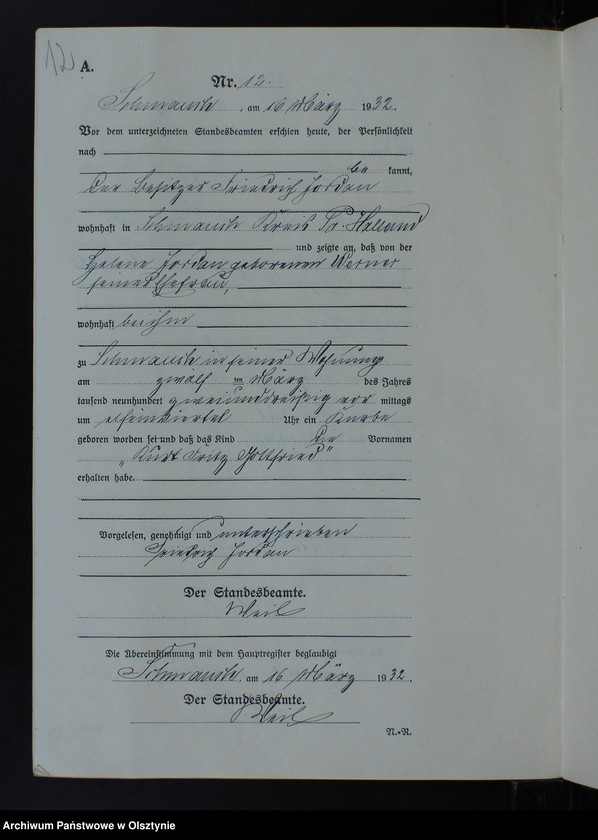 12
A.
Nr. 12.
Schmauch, am 16 März 1932.
Vor dem unterzeichneten Standesbeamten erschien heute, der Persönlichkeit
nach
be kannt,
der Besitzer Friedrich Jordan
wohnhaft in Schmauch Kreis Pr. Holland
und zeigte an, daß von der
Helene Jordan geborenen Werner
seiner Ehefrau,
wohnhaft bei ihm
zu Schmauch in seiner Wohnung
am zwölf ten März des Jahres
tausend neunhundert zweiunddreißig vor mittags
um elfeinviertel Uhr ein Knabe
geboren worden sei und daß das Kind die Vornamen
„Kurt Fritz Gottfried"
erhalten habe.
Vorgelesen, genehmigt und unterschrieben
Friedrich Jordan
Der Standesbeamte.
Weil
Die Übereinstimmung mit dem Hauptregister beglaubigt
Schmauch, am 16 März 1932.
Der Standesbeamte.
Weil
N.-R.
Archiwum Państwowe w Olsztynie